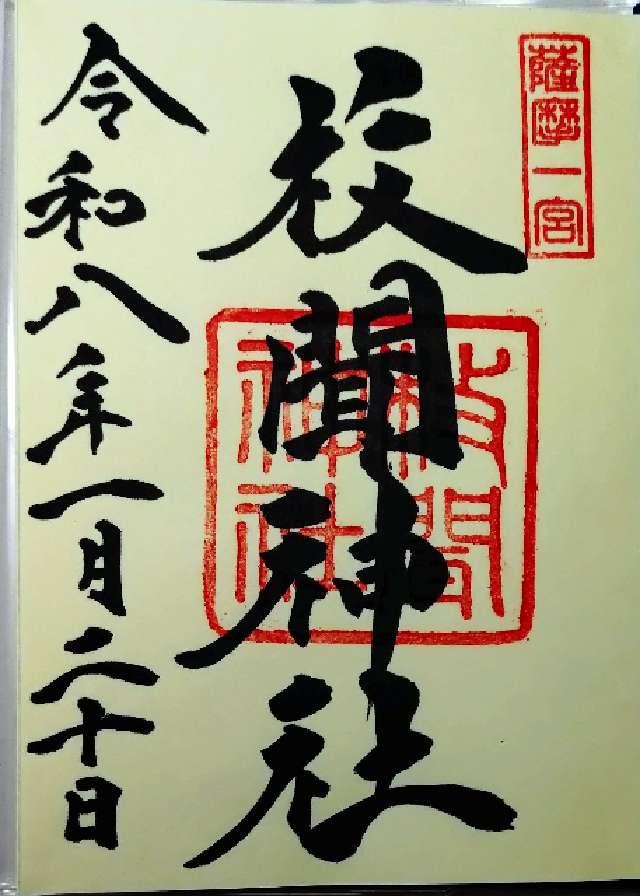 薩摩一宮
枚聞神社
枚聞神社
令和八年一月二十日